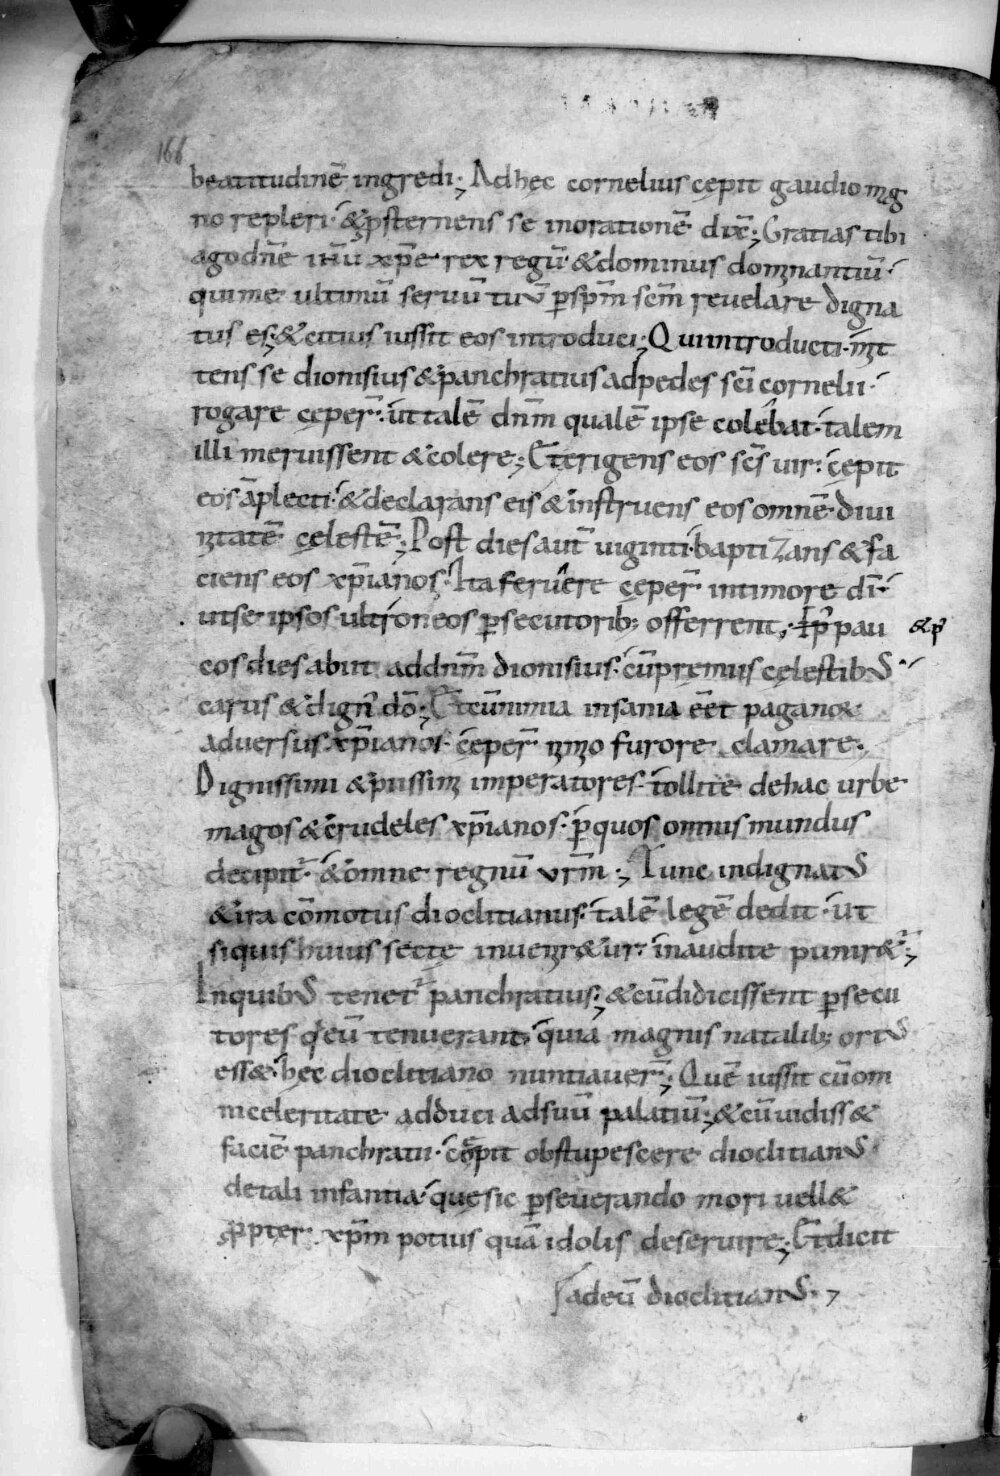 166
beatitudinē ingredi·, Ad hęc cornelius cępit gaudio mag
no repleri· &ꝓsternens se inorationē dix̄·, Gratias tibi
ago dn̄e ih̄u xp̄e rex regū &dominus dominantiū·
qui me ultimū seruū tuū ꝑ sp̄m sc̄m reuelare digna
tus es·, &citius iussit eos introduci·, Qui introducti· mit
tens se dionisius &panchratius ad pedes sc̄i cornelii·
rogare cęper̄· ut talē dn̄m qualē ipse colebat· talem
illi meruissent &colere·, Et erigens eos sc̄s uir· cępit
eos āplecti· &declarans eis &instruens eos omnē diui
nitatē cęlestē·, Post dies aut̄ uiginti· baptizans &fa
ciens eos xp̄ianos· Ita feruere cęper̄ in timore dī·
ut se ipsos ultroneos ꝑsecutorib; offerrent·, pau &p̄
cos dies abiit ad dn̄m dionisius· cū pręmiis cęlestibus·
carus &dign' dō·, Et cū nimia insania eēt paganoꝝ
aduersus xp̄ianos· cęper̄ nimio furore clamare·
Dignissimi &piissimi imperatores· tollite de hac urbe
magos &crudeles xp̄ianos· ꝑ quos omnis mundus
decipit̄· &omne regnū ur̄m·, Tunc indignatus
&ira cōmotus dioclitianus· talē legē dedit· ut
si quis huius sectę inueniret̄ uir· inaudite puniret̄·,
In quibus tenet̄ panchratius·, &cū didicissent ꝑsecu
tores qđ eū tenuerant· quia magnis natalib; ortus
ess&· hęc dioclitiano nuntiauer̄·, Quē iussit cū om
ni celeritate adduci ad suū palatiū·, &cū uidiss&
faciē panchratii· cępit obstupescere dioclitianus·
de tali infantia· quę sic ꝑseuerando mori uell&
ꝓpter xp̄m potius quā idolis deseruire·, Et dicit
ad eū dioclitianus·,